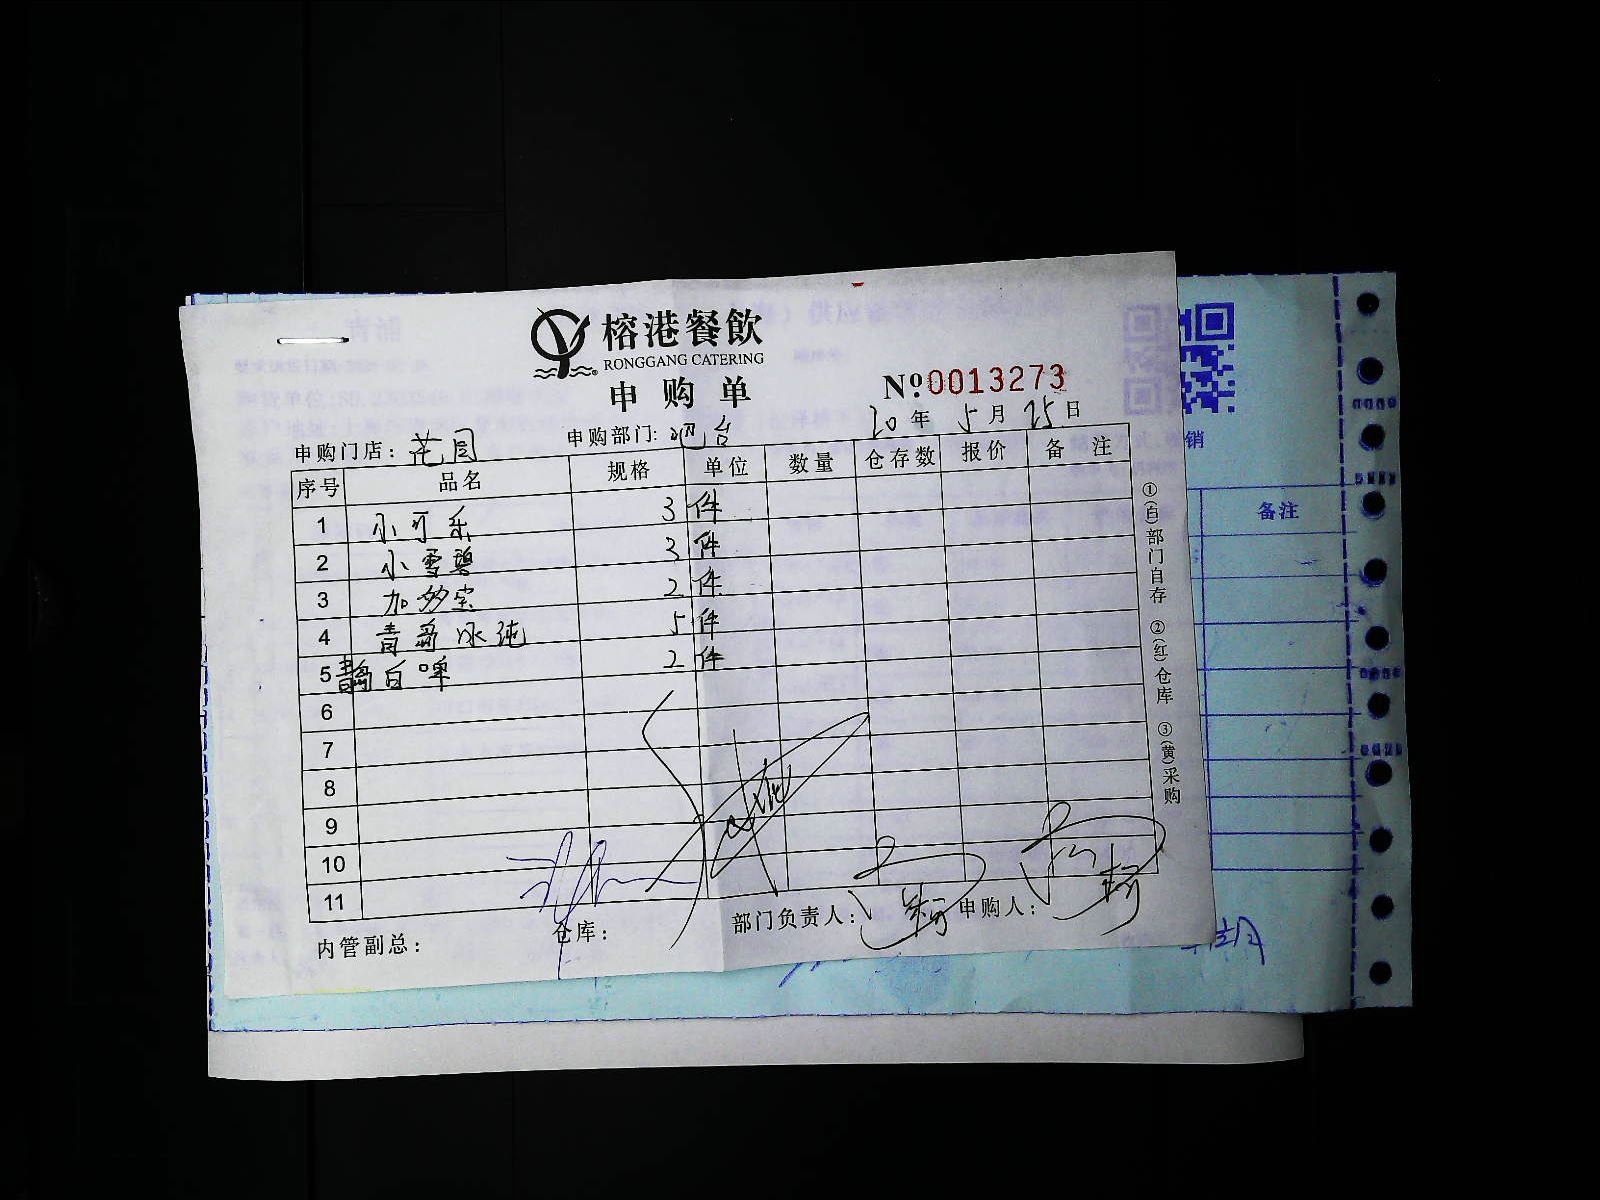 榕港餐飲
RONGGANG CATERING
申购单
№:0013273
20年5月25日
申购门店：花园 申购部门：吧台
序号 品名 规格 单位 数量 仓存数 报价 备注
1 小可乐 3 件
2 小雪碧 3 件
3 加多宝 2 件
4 青岛冰纯 5 件
5 青岛白啤 2 件
6
7
8
9
10
11
内管副总： 仓库： 部门负责人： 申购人：
①(白)部门自存 ②(红)仓库 ③(黄)采购
销
备注